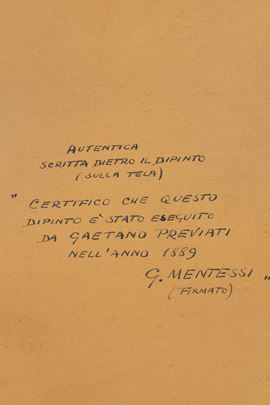 AUTENTICA
SCRITTA DIETRO IL DIPINTO
(SULLA TELA)
" CERTIFICO CHE QUESTO
DIPINTO E' STATO ESEGUITO
DA GAETANO PREVIATI
NELL'ANNO 1889
G. MENTESSI "
(FIRMATO)